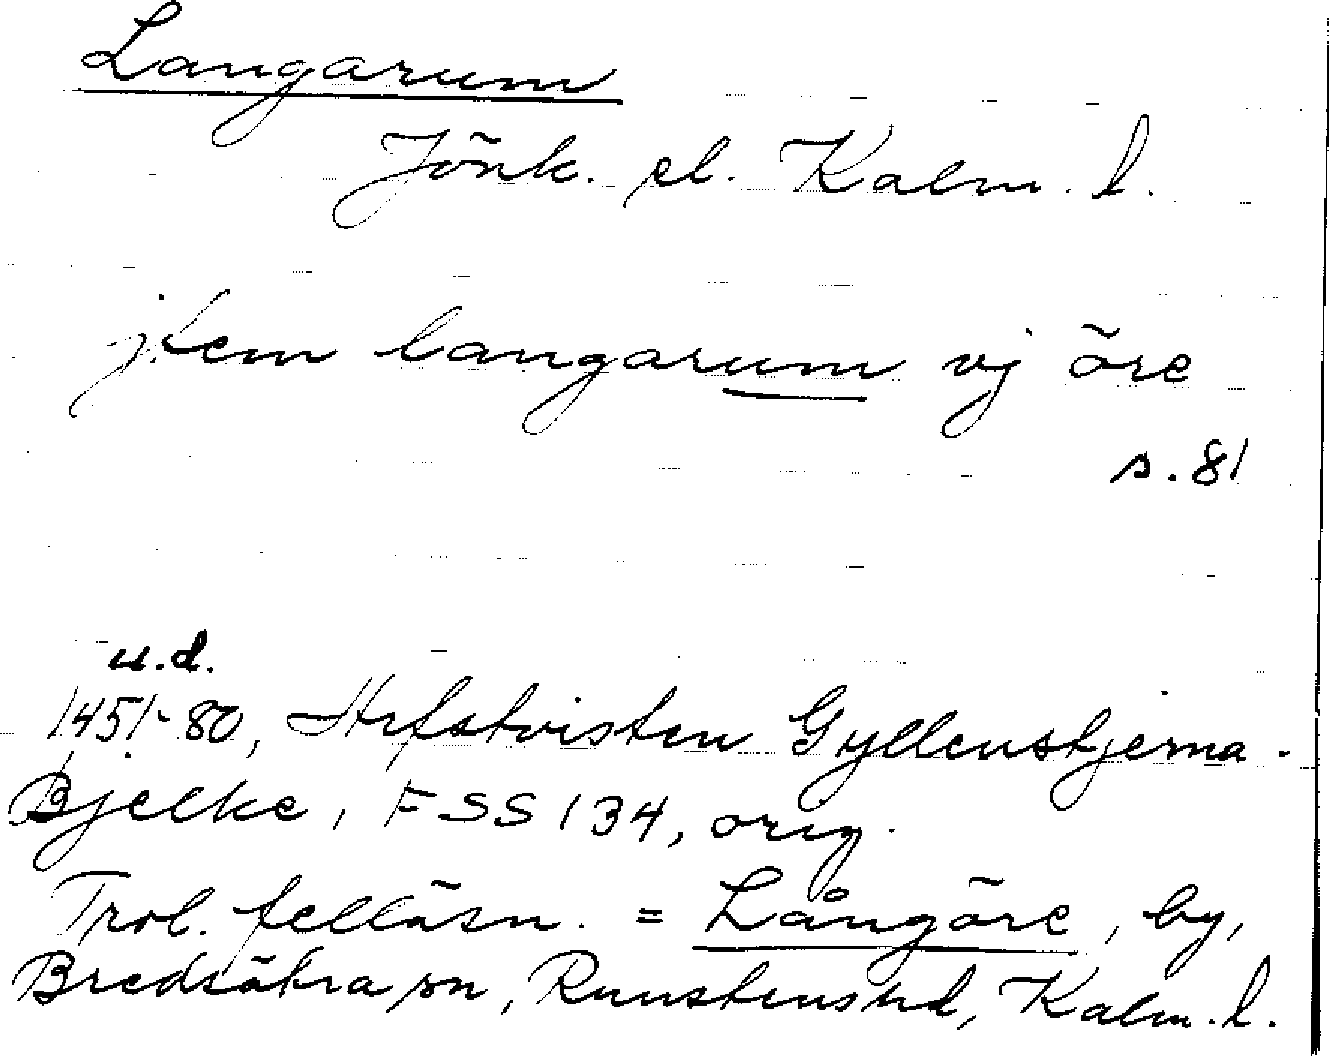 Langarum
Jönk. el. Kalm. l.
jtem langarum vj öre
s. 81
u.d.
1451-80, Arfstvisten Gyllenstjerna-
Bjelke, FSS 134, orig.
Trol. felläsn. = Långöre, by,
Bredsätra sn, Runstens hd, Kalm. l.